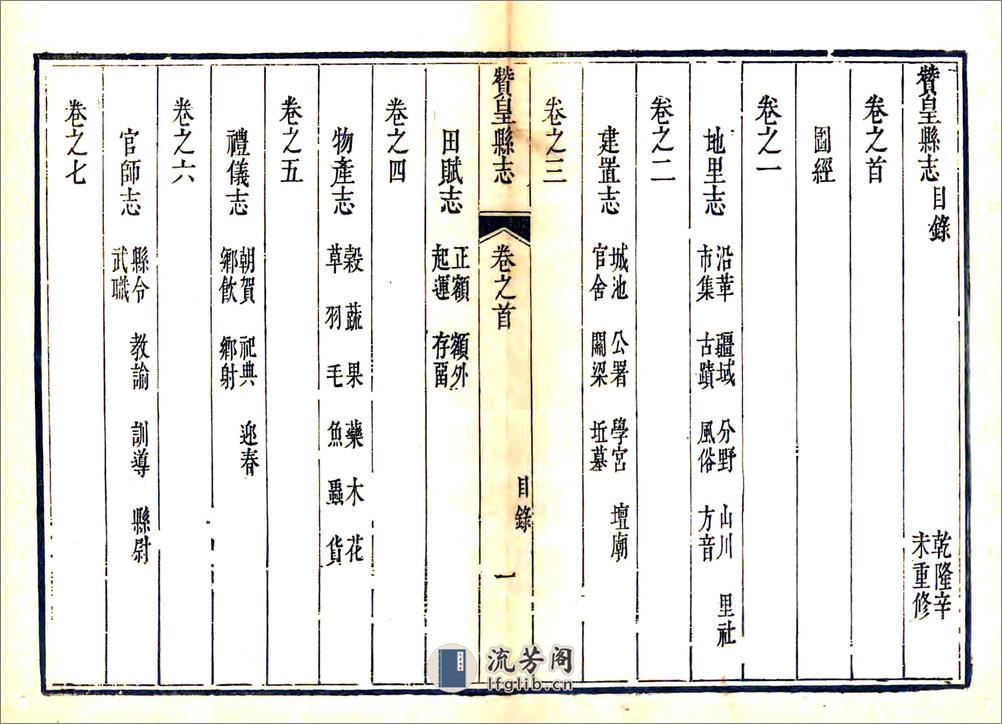 贊皇縣志目錄
乾隆辛
未重修
卷之首
圖經
卷之一
地里志
沿革 疆域 分野 山川 里社
市集 古蹟 風俗 方音
卷之二
建置志
城池 公署 學宮 壇廟
官舍 關梁 坵墓
卷之三
贊皇縣志
卷之首
目錄
一
田賦志
正額 額外
起運 存留
卷之四
物產志
穀 蔬 果 藥 木 花
草 羽 毛 魚 蟲 貨
卷之五
禮儀志
朝賀 祀典 迎春
鄉飲 鄉射
卷之六
官師志
縣令 教諭 訓導 縣尉
武職
卷之七
流芳阁
lfglib.cn